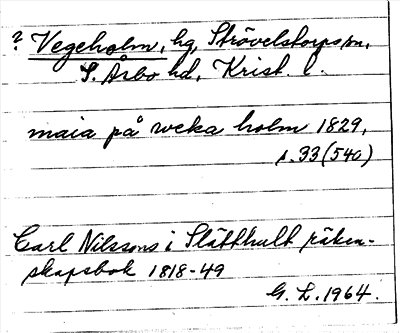 ? Vegeholm, hg, Strövelstorps sn,
S. Åsbo hd, Krist. l.
maia på weka holm 1829,
s. 33 (540)
Carl Nilssons i Slätthult räken-
skapsbok 1818-49
G. L. 1964.